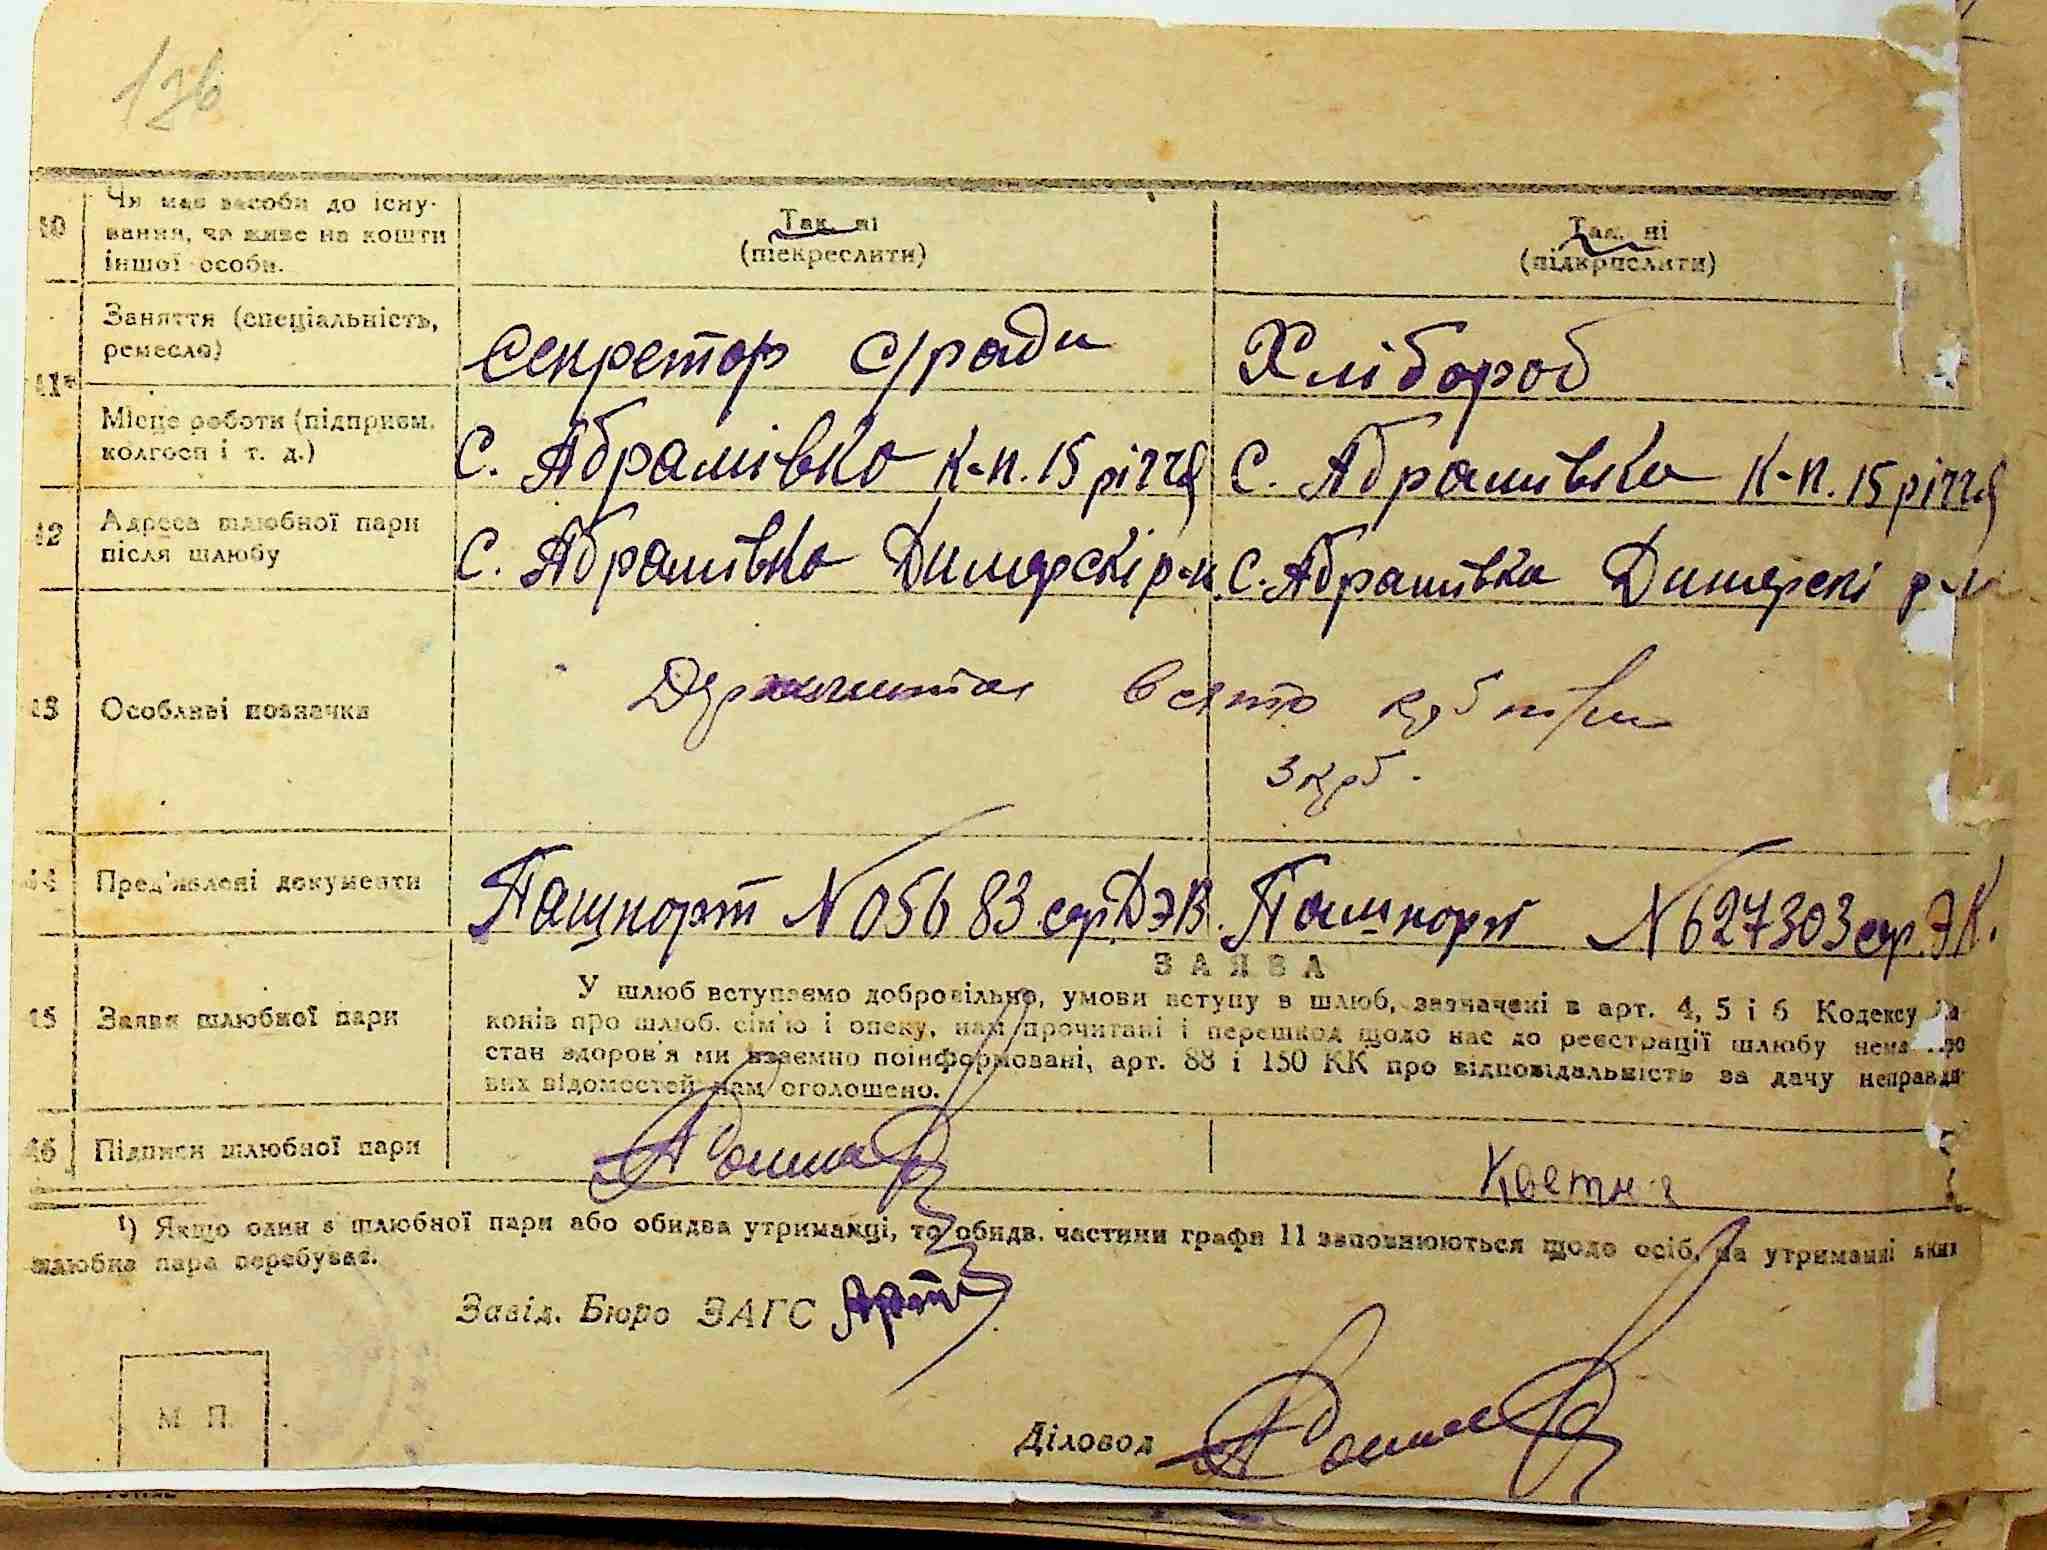 126
10 Чи має засоби до існу-
вання, чи живе на кошти
іншої особи.
Так, ні
(піекреслити)
Так, ні
(підкрислити)
11 Заняття (спеціальність,
ремесло)
Секретар с/ради
Хлібороб
Місце роботи (підприєм.
колгосп і т. д.)
С. Абрамівка к-п. 15 річчя
С. Абрамівка к-п. 15 річчя
12 Адреса шлюбної пари
після шлюбу
С. Абрамівка Димерскі р-н
С. Абрамівка Димерскі р-н
13 Особливі позначки
3 крб.
14 Пред'явлені документи
Пашпорт № 05683 сер ДЭВ.
Пашпорт № 627303 сер. ЭК.
15 Заява шлюбної пари
ЗАЯВА
У шлюб вступаємо добровільно, умови вступу в шлюб, зазначені в арт. 4, 5 і 6 Кодексу
конів про шлюб. сім'ю і опеку, нам прочитані і перешкод щодо нас до реєстрації шлюбу нема
стан здоров'я ми взаємно поінформовані, арт. 88 і 150 КК про відповідальність за дачу неправди
вих відомостей нам оголошено.
16 Підписи шлюбної пари
¹) Якщо один з шлюбної пари або обидва утриманці, то обидв. частини графи 11 заповнюються щодо осіб, на утриманні яких
шлюбна пара перебуває.
Завід. Бюро ЗАГС
М. П.
Діловод